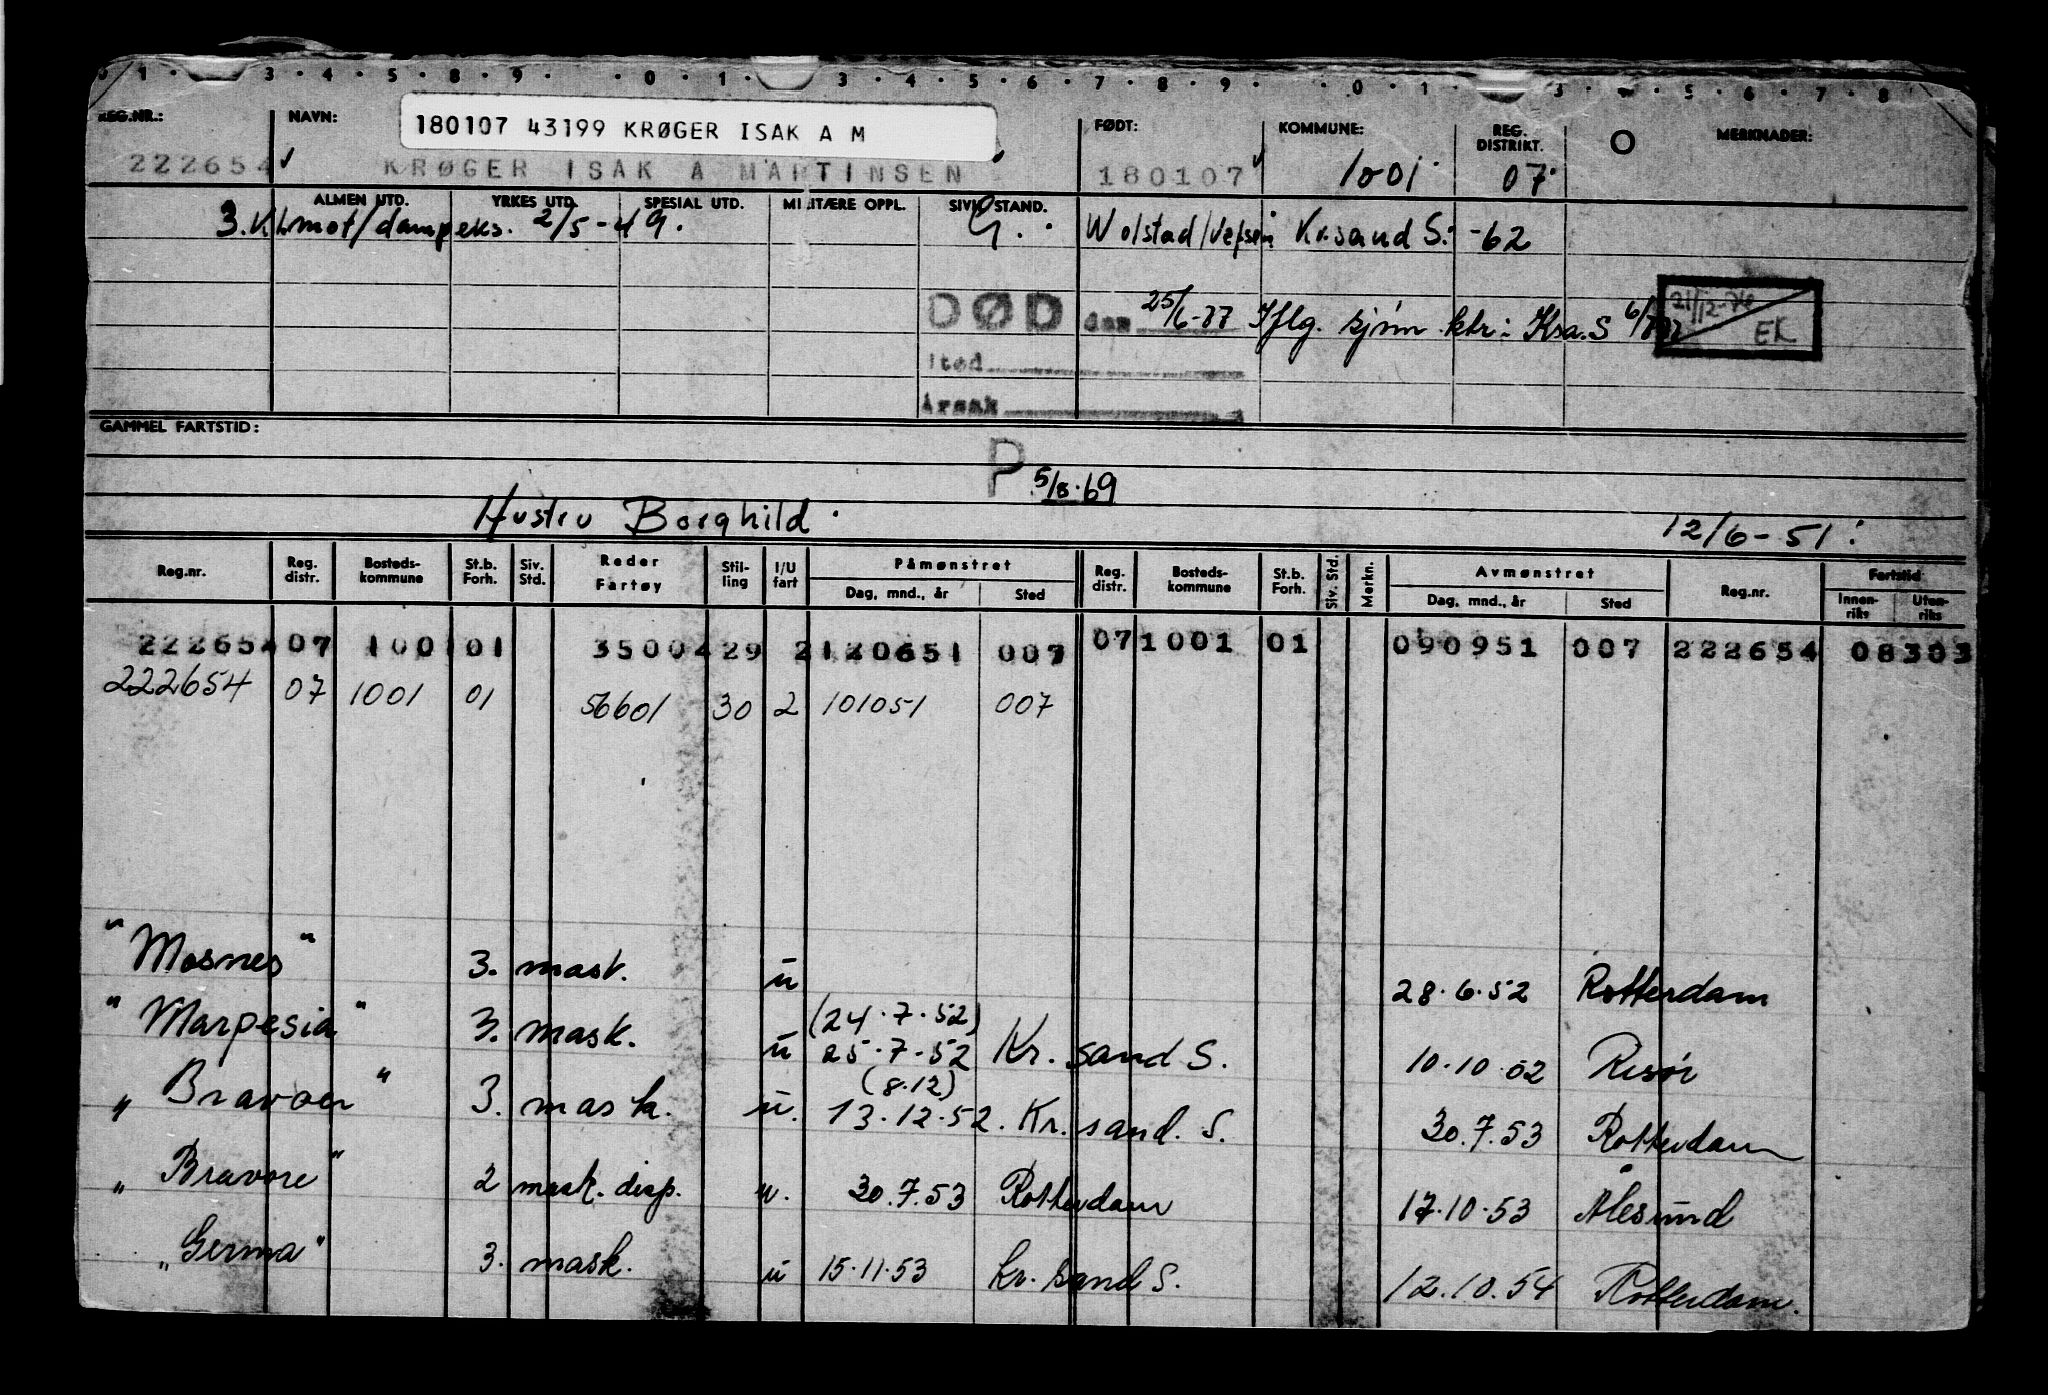 1 . 3 . 4 . 5 . 8 . 9 . . 0 . 1 . 3 . 4 . 5 . 6 . 7 . 8 . 9 . . 0 . 1 . 3 . 4 . 5 . 6 . 7 . 8
REG.NR.: NAVN: FØDT: KOMMUNE: REG. DISTRIKT. O MERKNADER:
180107 43199 KRØGER ISAK A M
222654 KRØGER ISAK A MARTINSEN 180107 1001 07
ALMEN UTD. YRKES UTD. SPESIAL UTD. MILITÆRE OPPL. SIVILSTAND.
3. Kl. mot/dampeks. 2/5-49. G. Wolstad/Vefsen Kr.sand S. -62
DØD den 25/6-77 Iflg. sjøm. ktr: Kra.S
21/12-76 EK
Sted
Årsak
GAMMEL FARTSTID:
P 5/8.69
Hustru Borghild. 12/6-51.
Reg.nr. Reg. distr. Bosteds- kommune St.b. Forh. Siv. Std. Reder Fartøy Stil- ling I/U fart Påmønstret Dag, mnd., år Sted Reg. distr. Bosteds- kommune St.b. Forh. Siv. Std. Merkn. Avmønstret Dag, mnd., år Sted Reg.nr. Fartstid Innen- riks Uten- riks
222654 07 1001 01 35004 29 2 120651 007 07 1001 01 090951 007 222654 08303
222654 07 1001 01 56601 30 2 101051 007
"Mosnes" 3. mask. u 28.6.52 Rotterdam
"Marpesia" 3. mask. u (24.7.52) 25.7.52 Kr. sand S. 10.10.52 Risør
"Bravoer" 3. mask. u. (8.12) 13.12.52. Kr.sand. S. 30.7.53 Rotterdam
"Bravore" 2 mask. disp. u. 30.7.53 Rotterdam 17.10.53 Ålesund
"Germa" 3. mask. u 15.11.53 Kr. sand S. 12.10.54 Rotterdam.